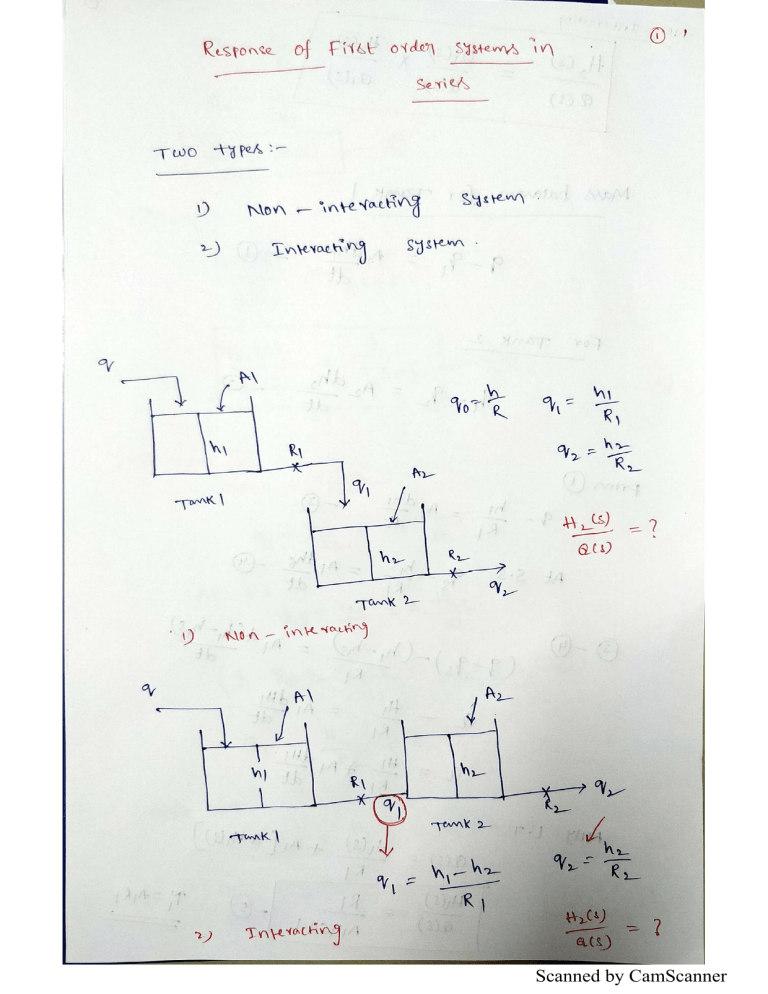 ①
Response of First order systems in
Series
Two types:-
1) Non-interacting system.
2) Interacting system.
q
A1
h1
R1
q1
Tank 1
q0 = h/R q1 = h1/R1
q2 = h2/R2
A2
h2
R2
q2
Tank 2
H2(s)/Q(s) = ?
1) Non-interacting
q
A1
h1
R1
q1
Tank 1
A2
h2
R2
q2
Tank 2
q1 = h1-h2/R1
q2 = h2/R2
2) Interacting
H2(s)/Q(s) = ?
Scanned by CamScanner